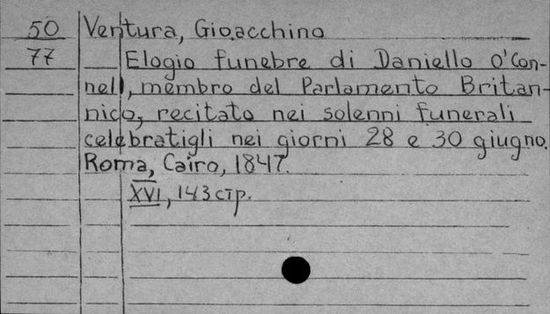 50 Ventura, Gioacchino
77 Elogio funebre di Daniello O'Con-
nell, membro del Parlamento Britan-
nico, recitato nei solenni funerali
celebratigli nei giorni 28 e 30 giugno.
Roma, Cairo, 1847.
XVI, 143 стр.